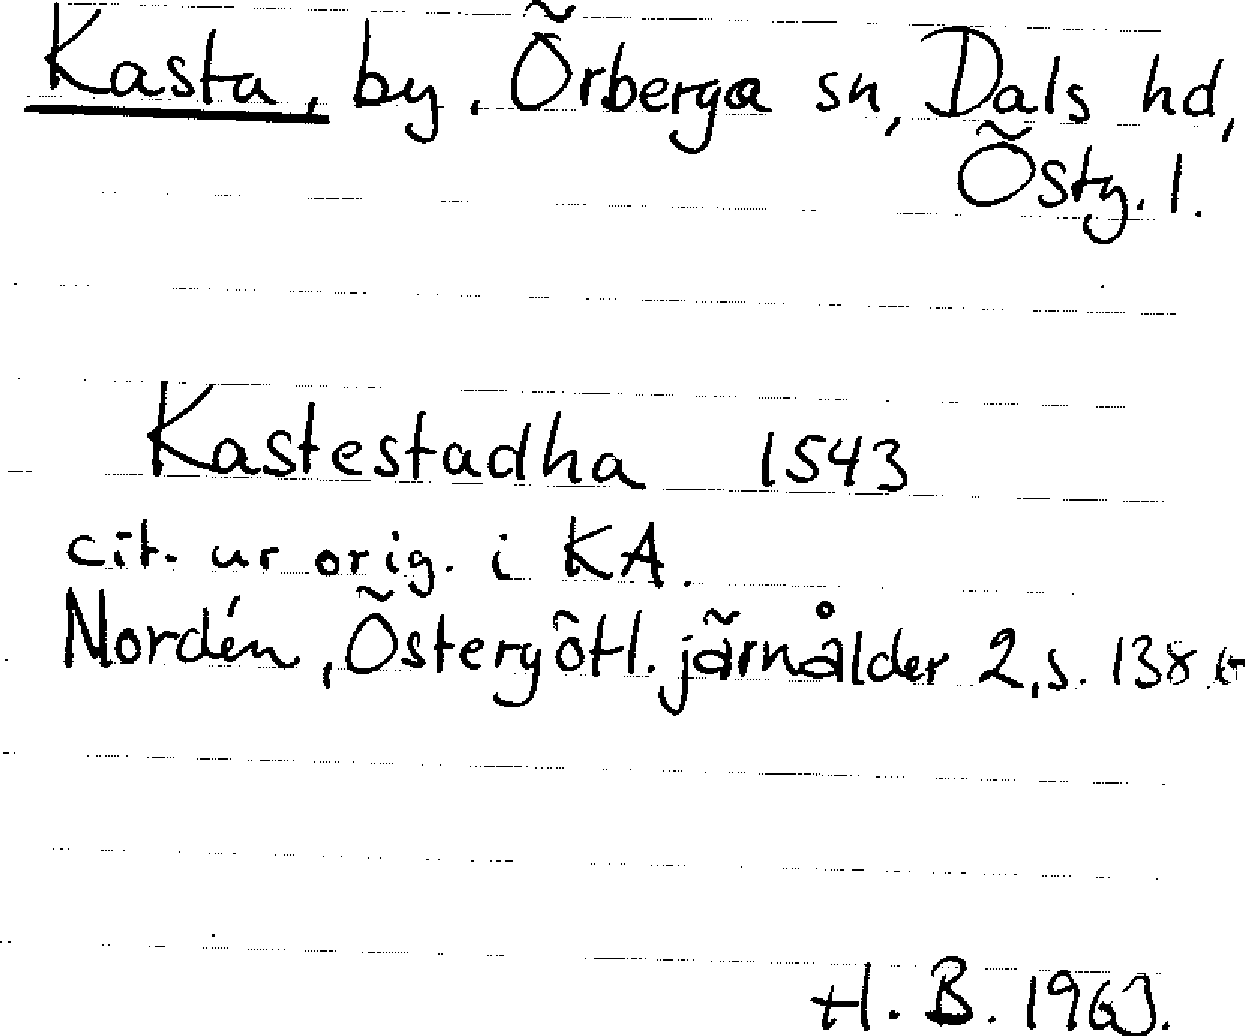 Kasta, by, Örberga sn, Dals hd,
Östg. l.
Kastestadha 1543
cit. ur orig. i KA.
Nordén, Östergötl. järnålder 2, s. 138
H. B. 1963.